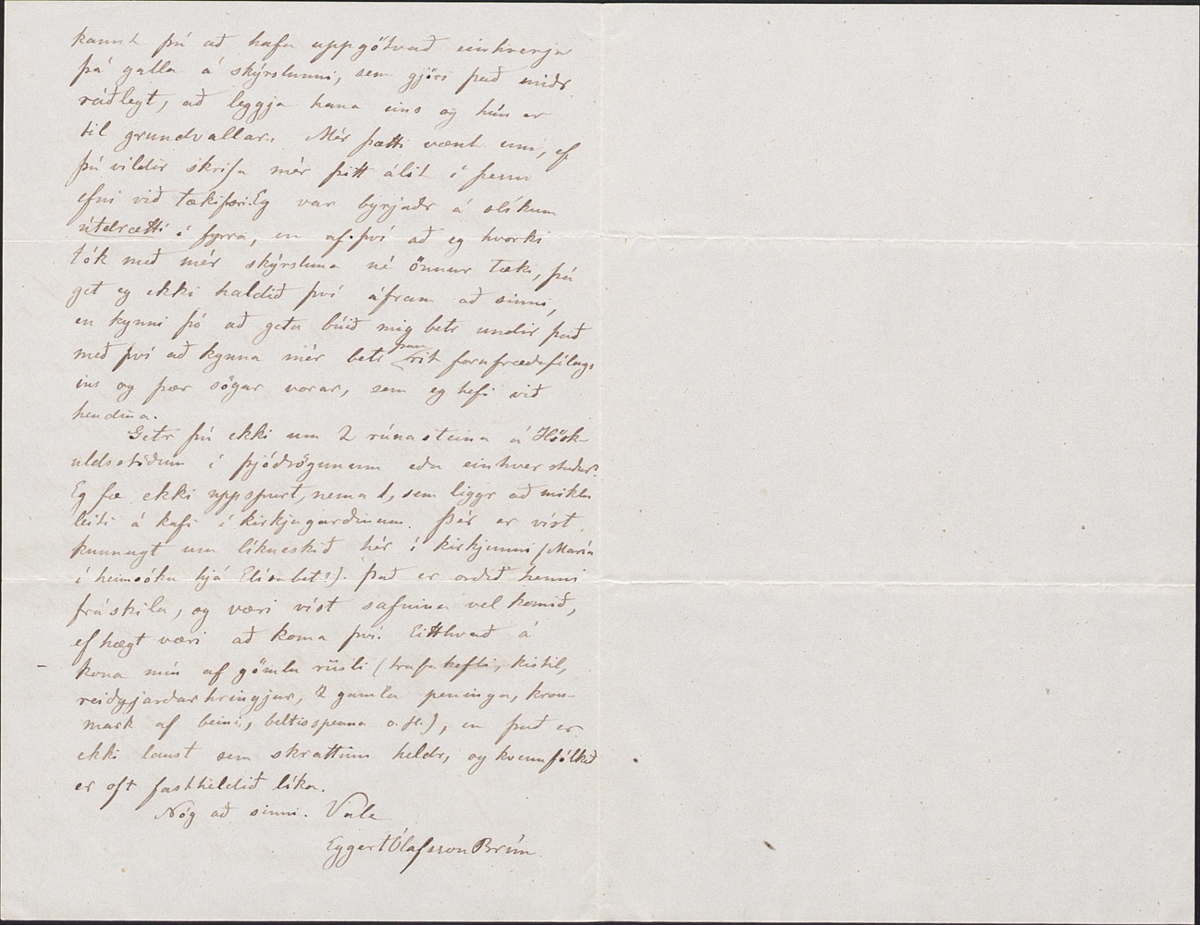 kannt þú að hafa uppgötvað einhverja
þá galla á skýrslunni, sem gjöri það miðr
ráðlegt, að leggja hana eins og hún er
til grundvallar. Mér þætti vænt um, ef
þú vildir skrifa mér þitt álit í þessu
efni við tækifæri. Eg var byrjaðr á slíkum
útdrætti í fyrra, en af því að eg hvorki
tók með mér skýrsluna né önnur tæki, þá
get eg ekki haldið því áfram að sinni,
en kynni þó að geta búið mig betr undir það
með því að kynna mér betr þau rit fornfræðafélags
ins og þær sögur vorar, sem eg hefi við
hendina.
Getr þú ekki um 2 rúnasteina á Hösk-
uldsstöðum í þjóðsögunum eða einhver staðar?
Eg fæ ekki uppspurt, nema 1, sem liggr að miklu
leiti á kafi í kirkjugarðinum. Þér er víst
kunnugt um líkneskið hér í kirkjunni (María
í heimsókn hjá Elísabet?). Það er orðið henni
fráskila, og væri víst safninu vel komið,
ef hægt væri að koma því. Eitthvað á
kona mín af gömlu rusli (trafakefli, kistil,
reiðgjarðarhringjur, 2 gamla peninga,
mark af beini, beltisspenna o. fl.), en það er
ekki laust sem skrattinn heldr, og kvennfólkið
er oft fastheldið líka.
Nóg að sinni. Vale
Eggert Ólafsson Brím.